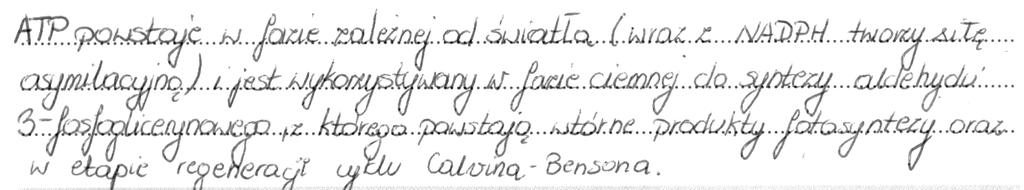 ATP powstaje w fazie zależnej od światła (wraz z NADPH tworzy siłę
asymilacyjną) i jest wykorzystywany w fazie ciemnej do syntezy aldehydu
3-fosfoglicerynowego, z którego powstają wtórne produkty fotosyntezy oraz
w etapie regeneracji cyklu Calvina-Bensona.